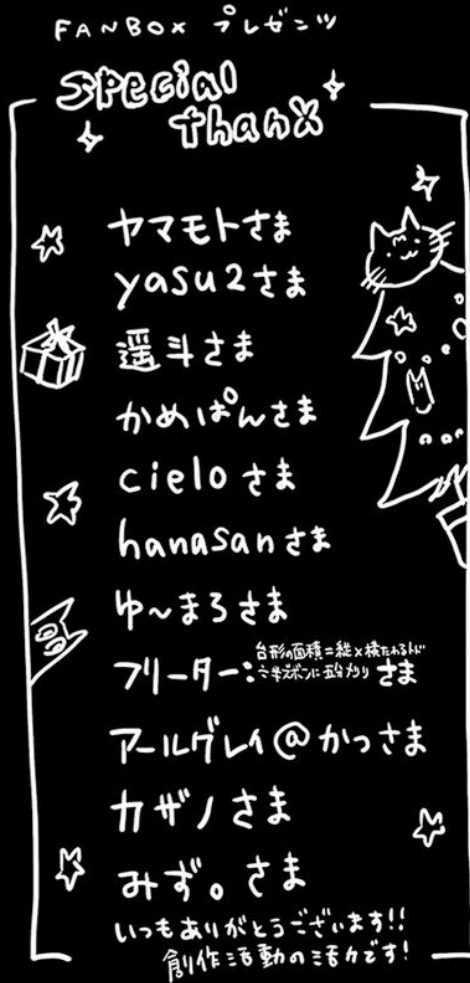 FANBOX プレゼンツ
special
thanX
ヤマモトさま
yasu2さま
遥斗さま
かめぱんさま
cieloさま
hanasanさま
ゆ〜まろさま
フリーター:台形の面積=縦×横たわるトド
半ズボンに さま
アールグレイ@かっさま
カザノさま
みず。さま
いつもありがとうございます!!
創作活動の活力です!